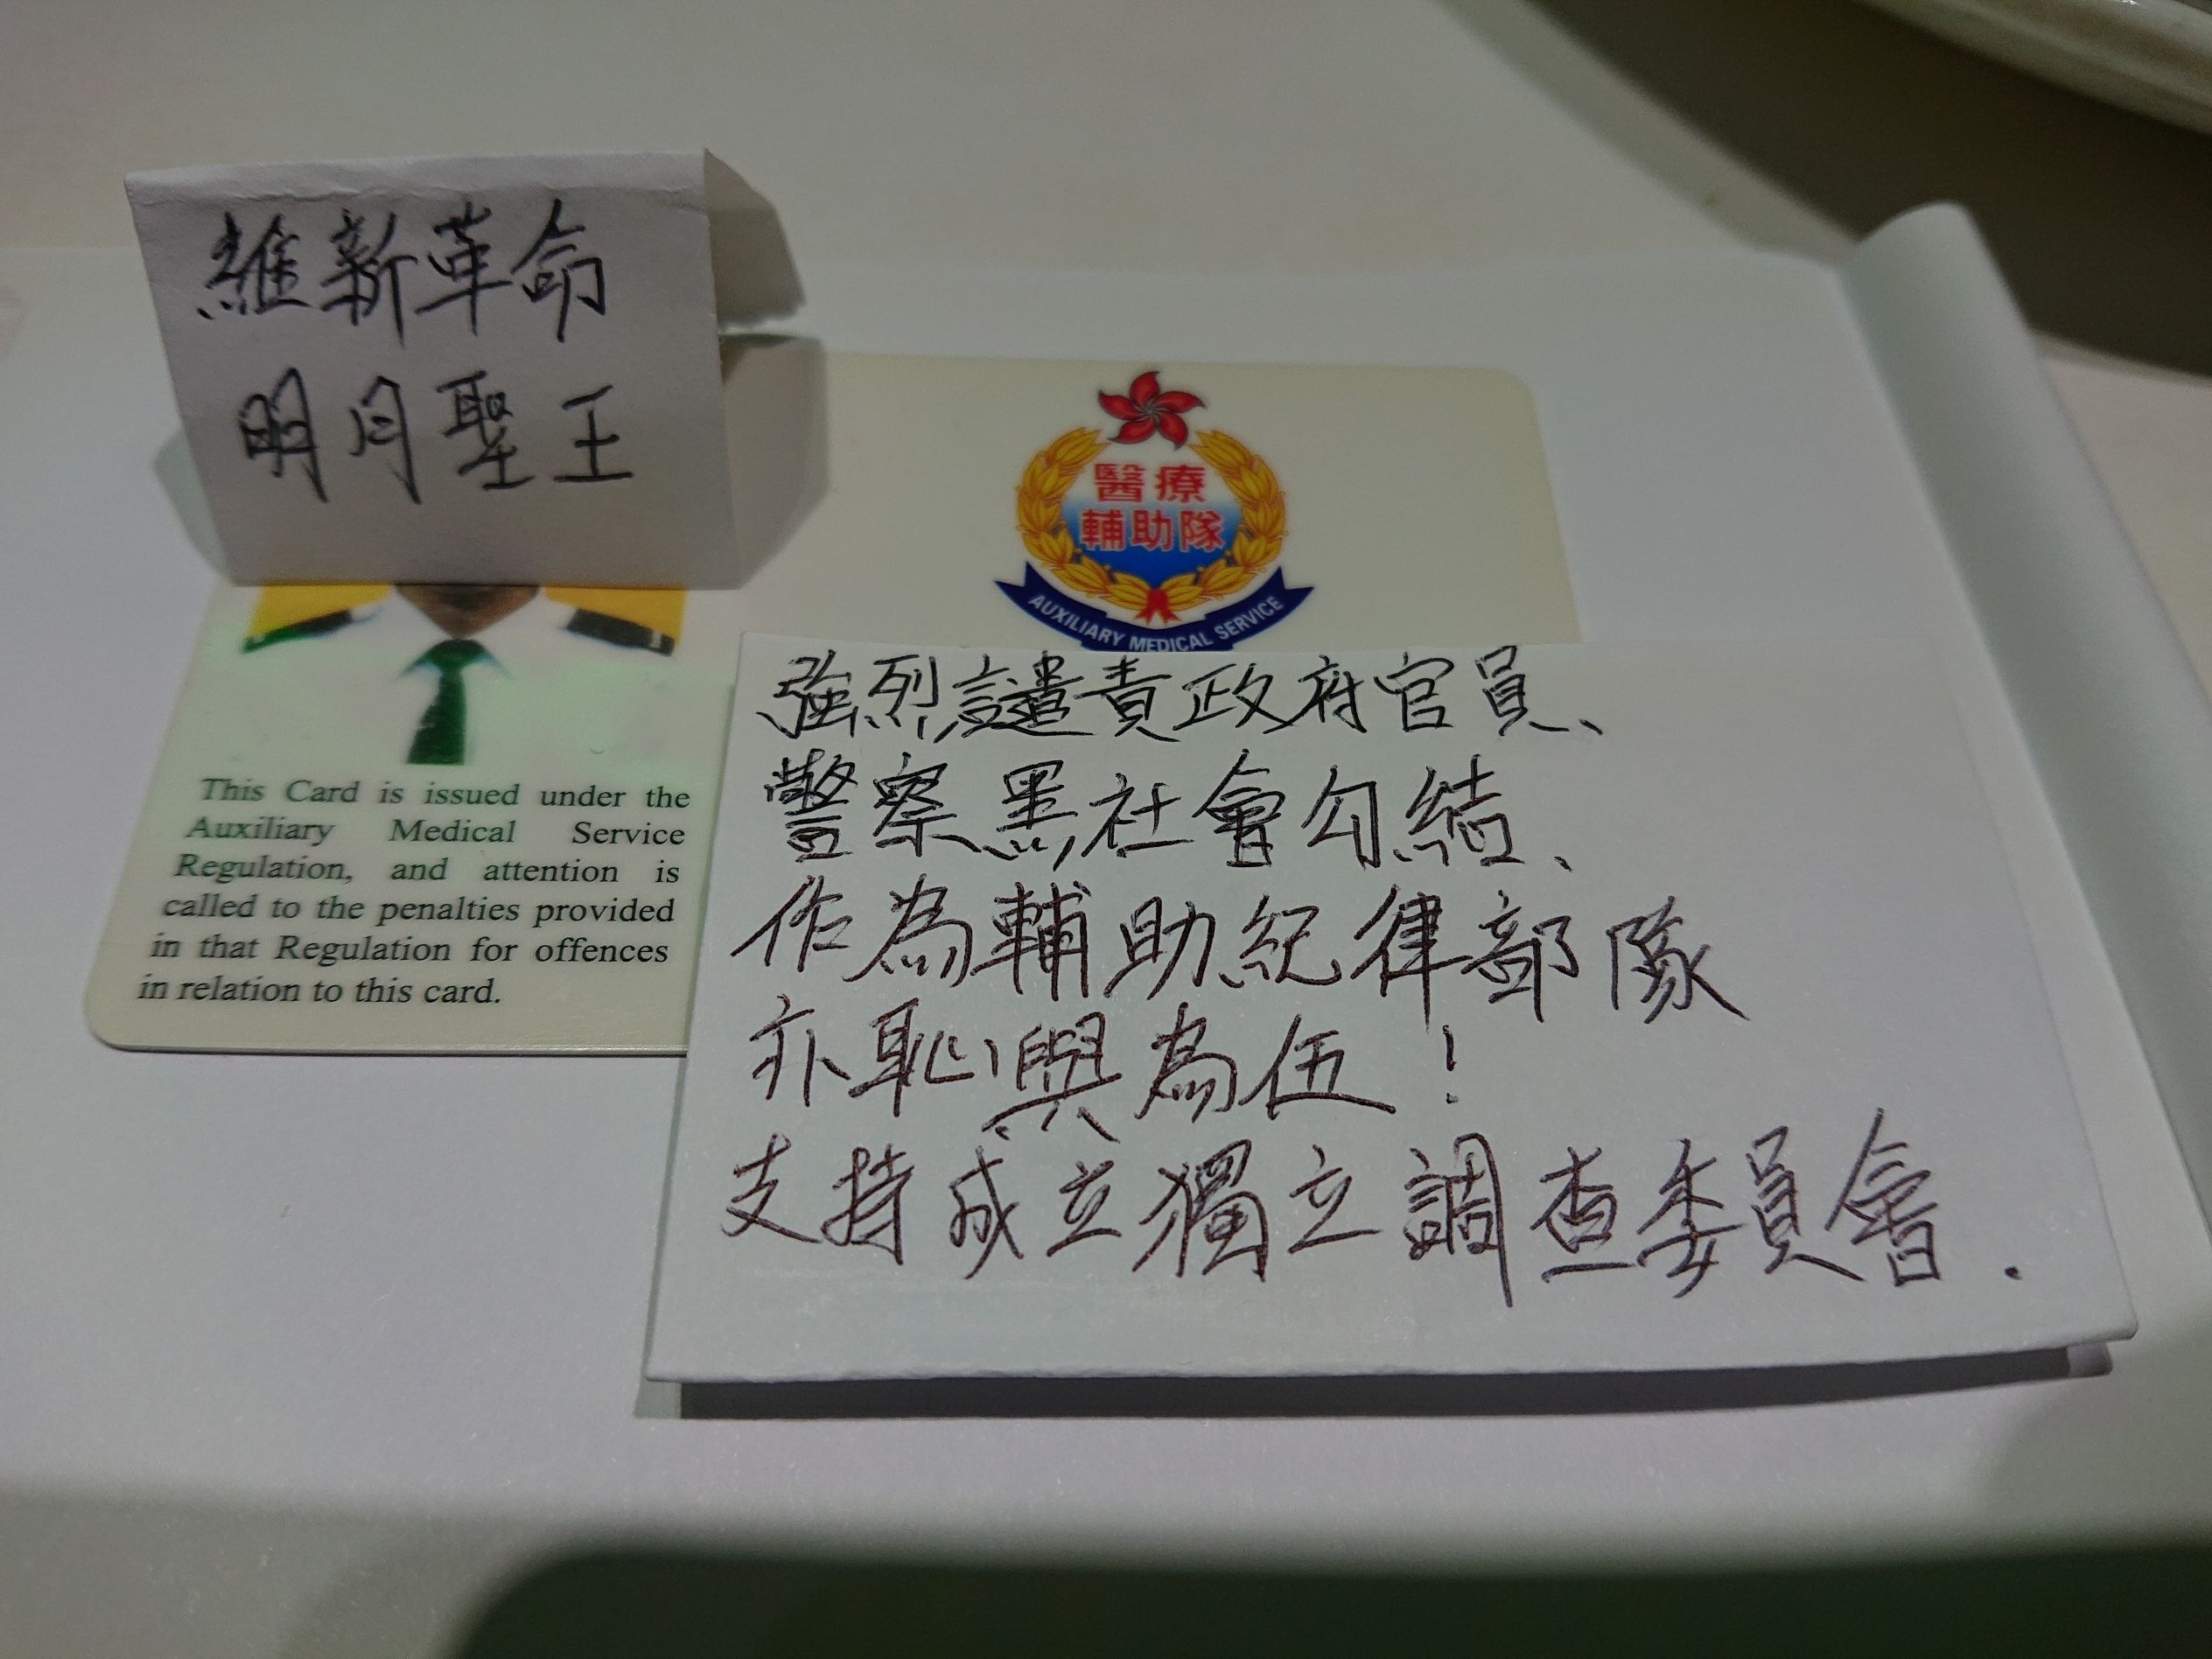 維新革命
明月聖王
醫療
輔助隊
AUXILIARY MEDICAL SERVICE
This Card is issued under the
Auxiliary Medical Service
Regulation, and attention is
called to the penalties provided
in that Regulation for offences
in relation to this card.
強烈譴責政府官員、
警察黑社會勾結、
作為輔助紀律部隊
亦恥與為伍！
支持成立獨立調查委員會.